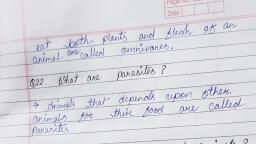 Page No.
Date
eat both plants and flesh of an
animal are called omnivores.
Q22. What are parasites?
→ Animals that depends upon other
animals for their food are called
Parasites